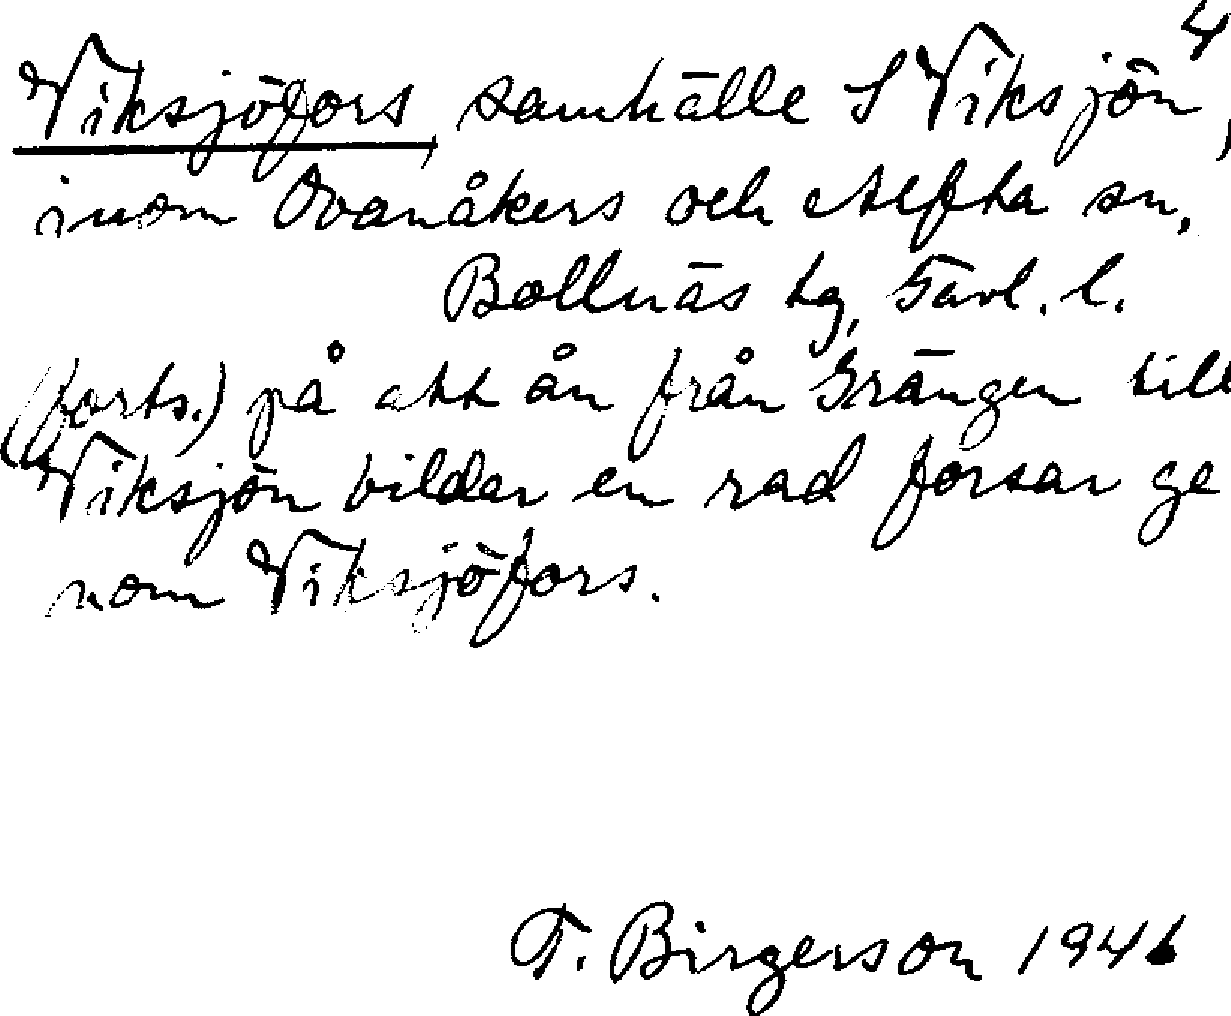 4
Viksjöfors, samhälle S Viksjön,
inom Ovanåkers och Alfta sn,
Bollnäs tg, Gävl. l.
(forts.) på att ån från Grängen till
Viksjön bildar en rad forsar ge
nom Viksjöfors.
F. Birgerson 1946